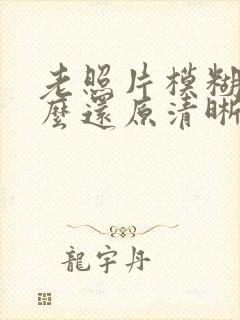 老照片模糊
麼還原清晰
龍宇丹